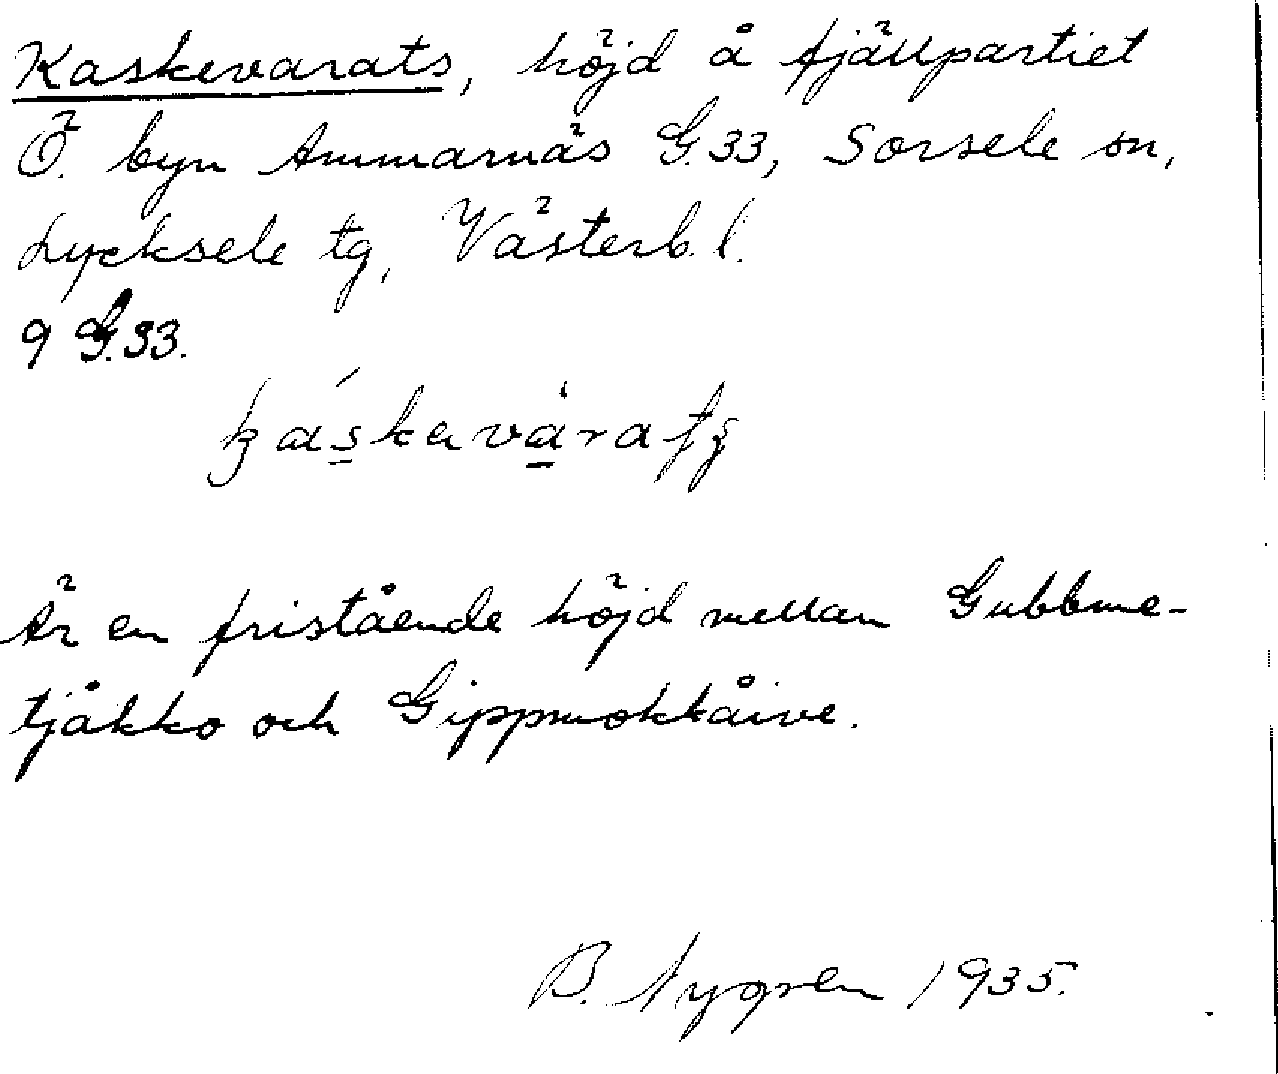 Kaskevarats, höjd å fjällpartiet
Ö. byn Ammarnäs G.33, Sorsele sn,
Lycksele tg, Västerb. l.
9 G.33.
Är en fristående höjd mellan Gubbme-
tjåkko och Gippmokkåive.
B. Nygren 1935.